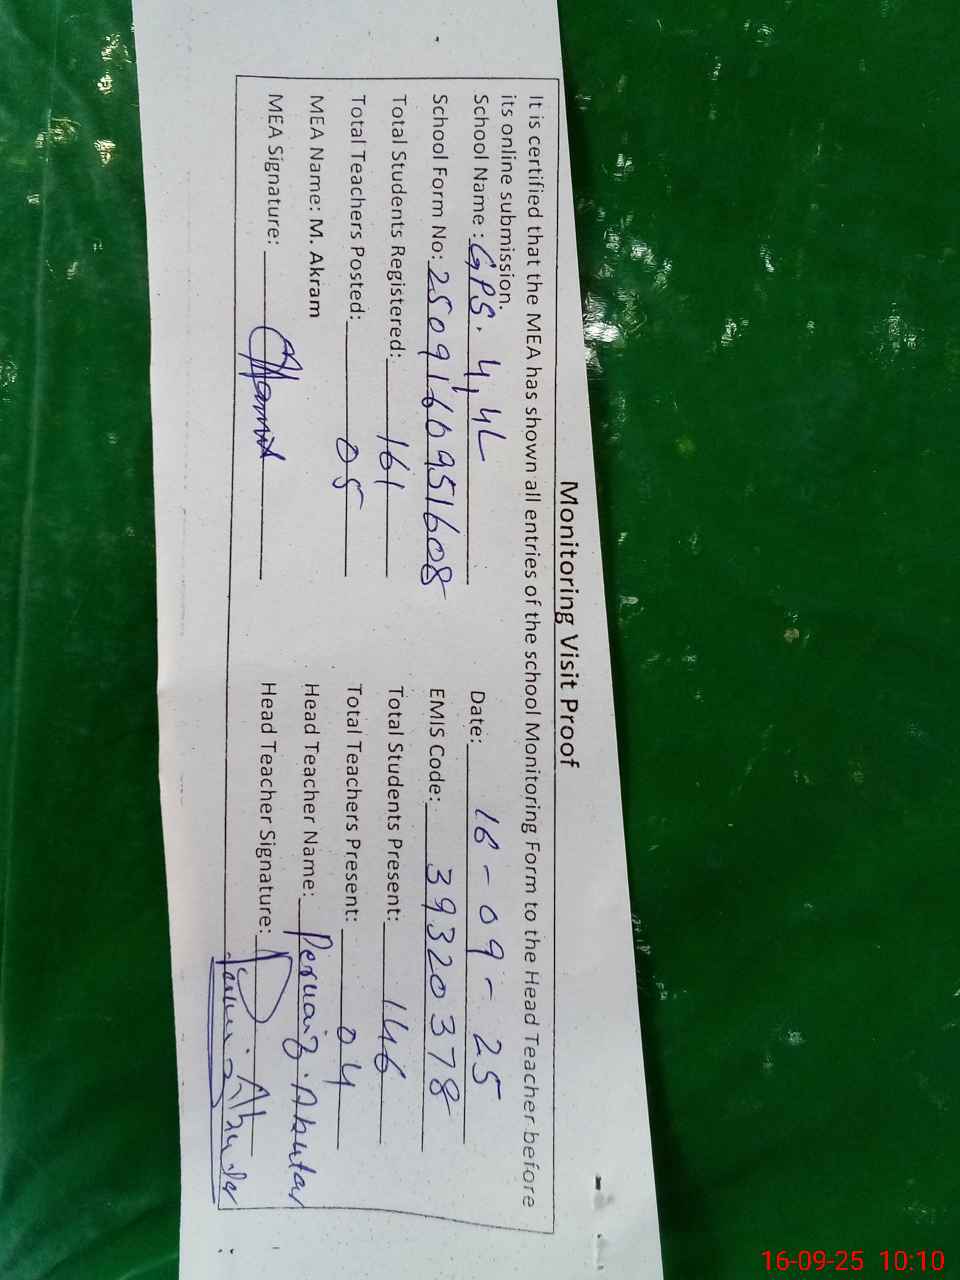 Monitoring Visit Proof
It is certified that the MEA has shown all entries of the school Monitoring Form to the Head Teacher before
its online submission.
School Name : GPS. 4,4L Date: 16-09-25
School Form No: 2509160951608 EMIS Code: 39320378
Total Students Registered: 161 Total Students Present: 146
Total Teachers Posted: 05 Total Teachers Present: 04
MEA Name: M. Akram Head Teacher Name: Pervaiz. Akhtar
MEA Signature: Head Teacher Signature:
16-09-25 10:10